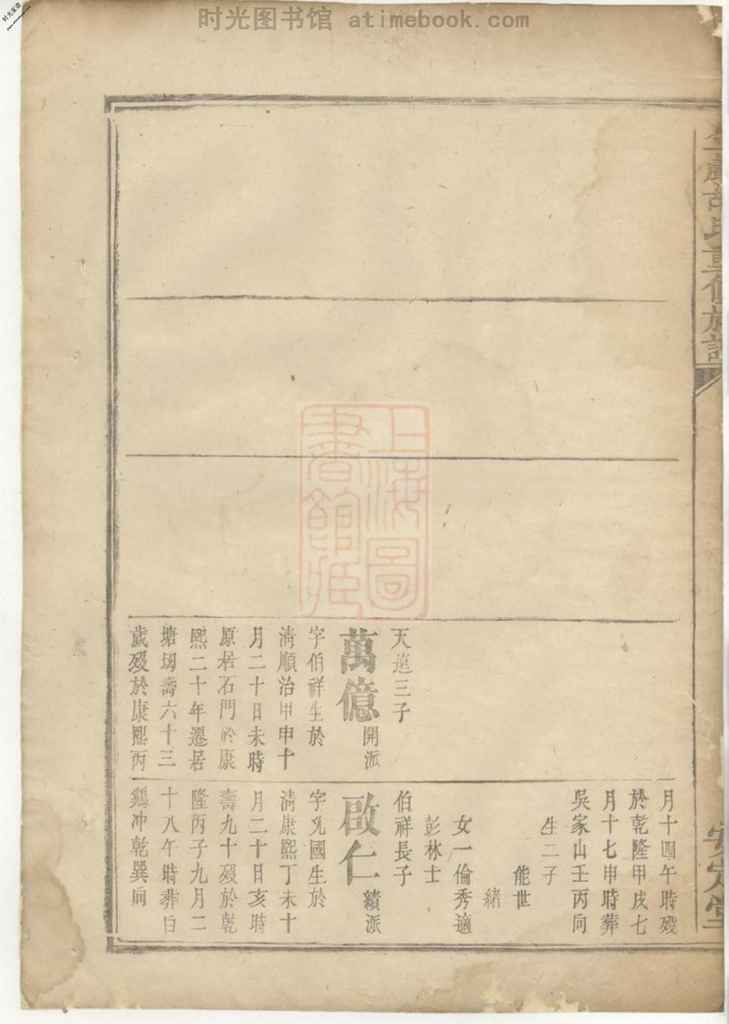 时光图书馆 atimebook.com
胡氏重修族譜
安定堂
上海圖
書館
天遴三子
萬億 開派
字伯祥生於
清順治甲申十
月二十日未時
原居石門於康
熙二十年遷居
塘坳壽六十三
歲歿於康熙丙
月十四午時歿
於乾隆甲戌七
月十七申時葬
吳家山壬丙向
生二子
能世
緒
女一倫秀適
彭林士
伯祥長子
啟仁 續派
字光國生於
清康熙丁未十
月二十日亥時
壽九十歿於乾
隆丙子九月二
十八午時葬白
鷄冲乾巽向